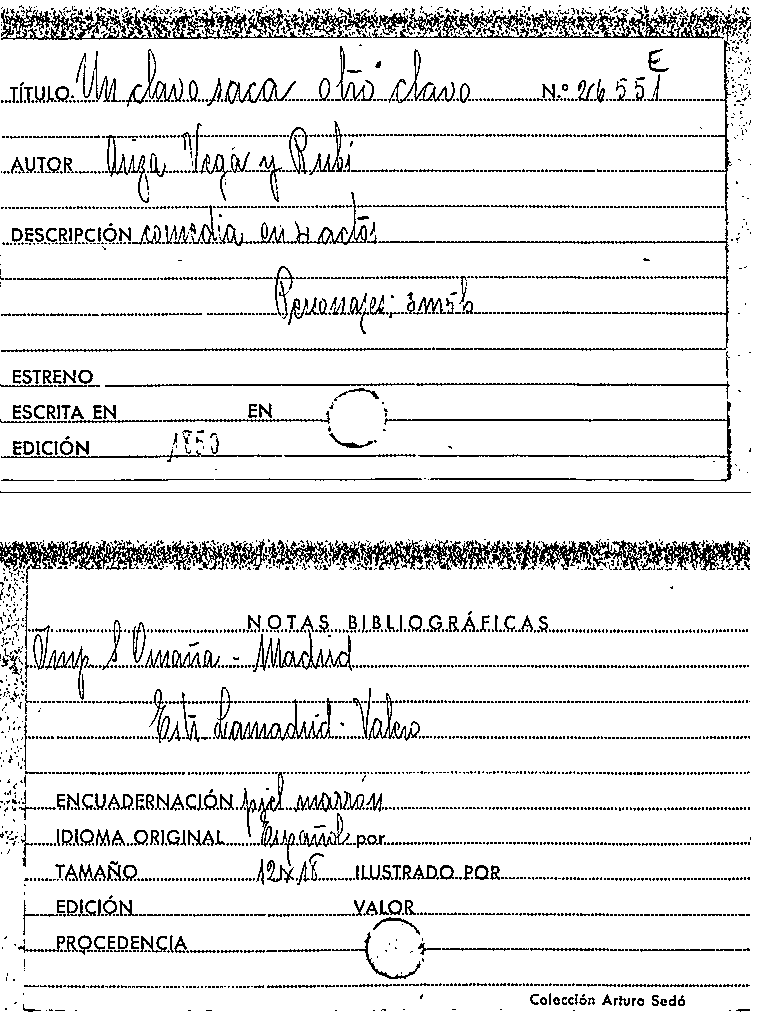 TÍTULO. Un clavo saca otro clavo N.º 26551 E
AUTOR Ariza Vega y Rubí
DESCRIPCIÓN comedia en 4 actos
Personajes: 3m5h
ESTRENO
ESCRITA EN EN
EDICIÓN 1850
NOTAS BIBLIOGRÁFICAS
Imp S Omaña - Madrid
Estr Lamadrid - Valero
ENCUADERNACIÓN piel marrón
IDIOMA ORIGINAL Español por
TAMAÑO 12x18 ILUSTRADO POR
EDICIÓN VALOR
PROCEDENCIA
Colección Arturo Sedó